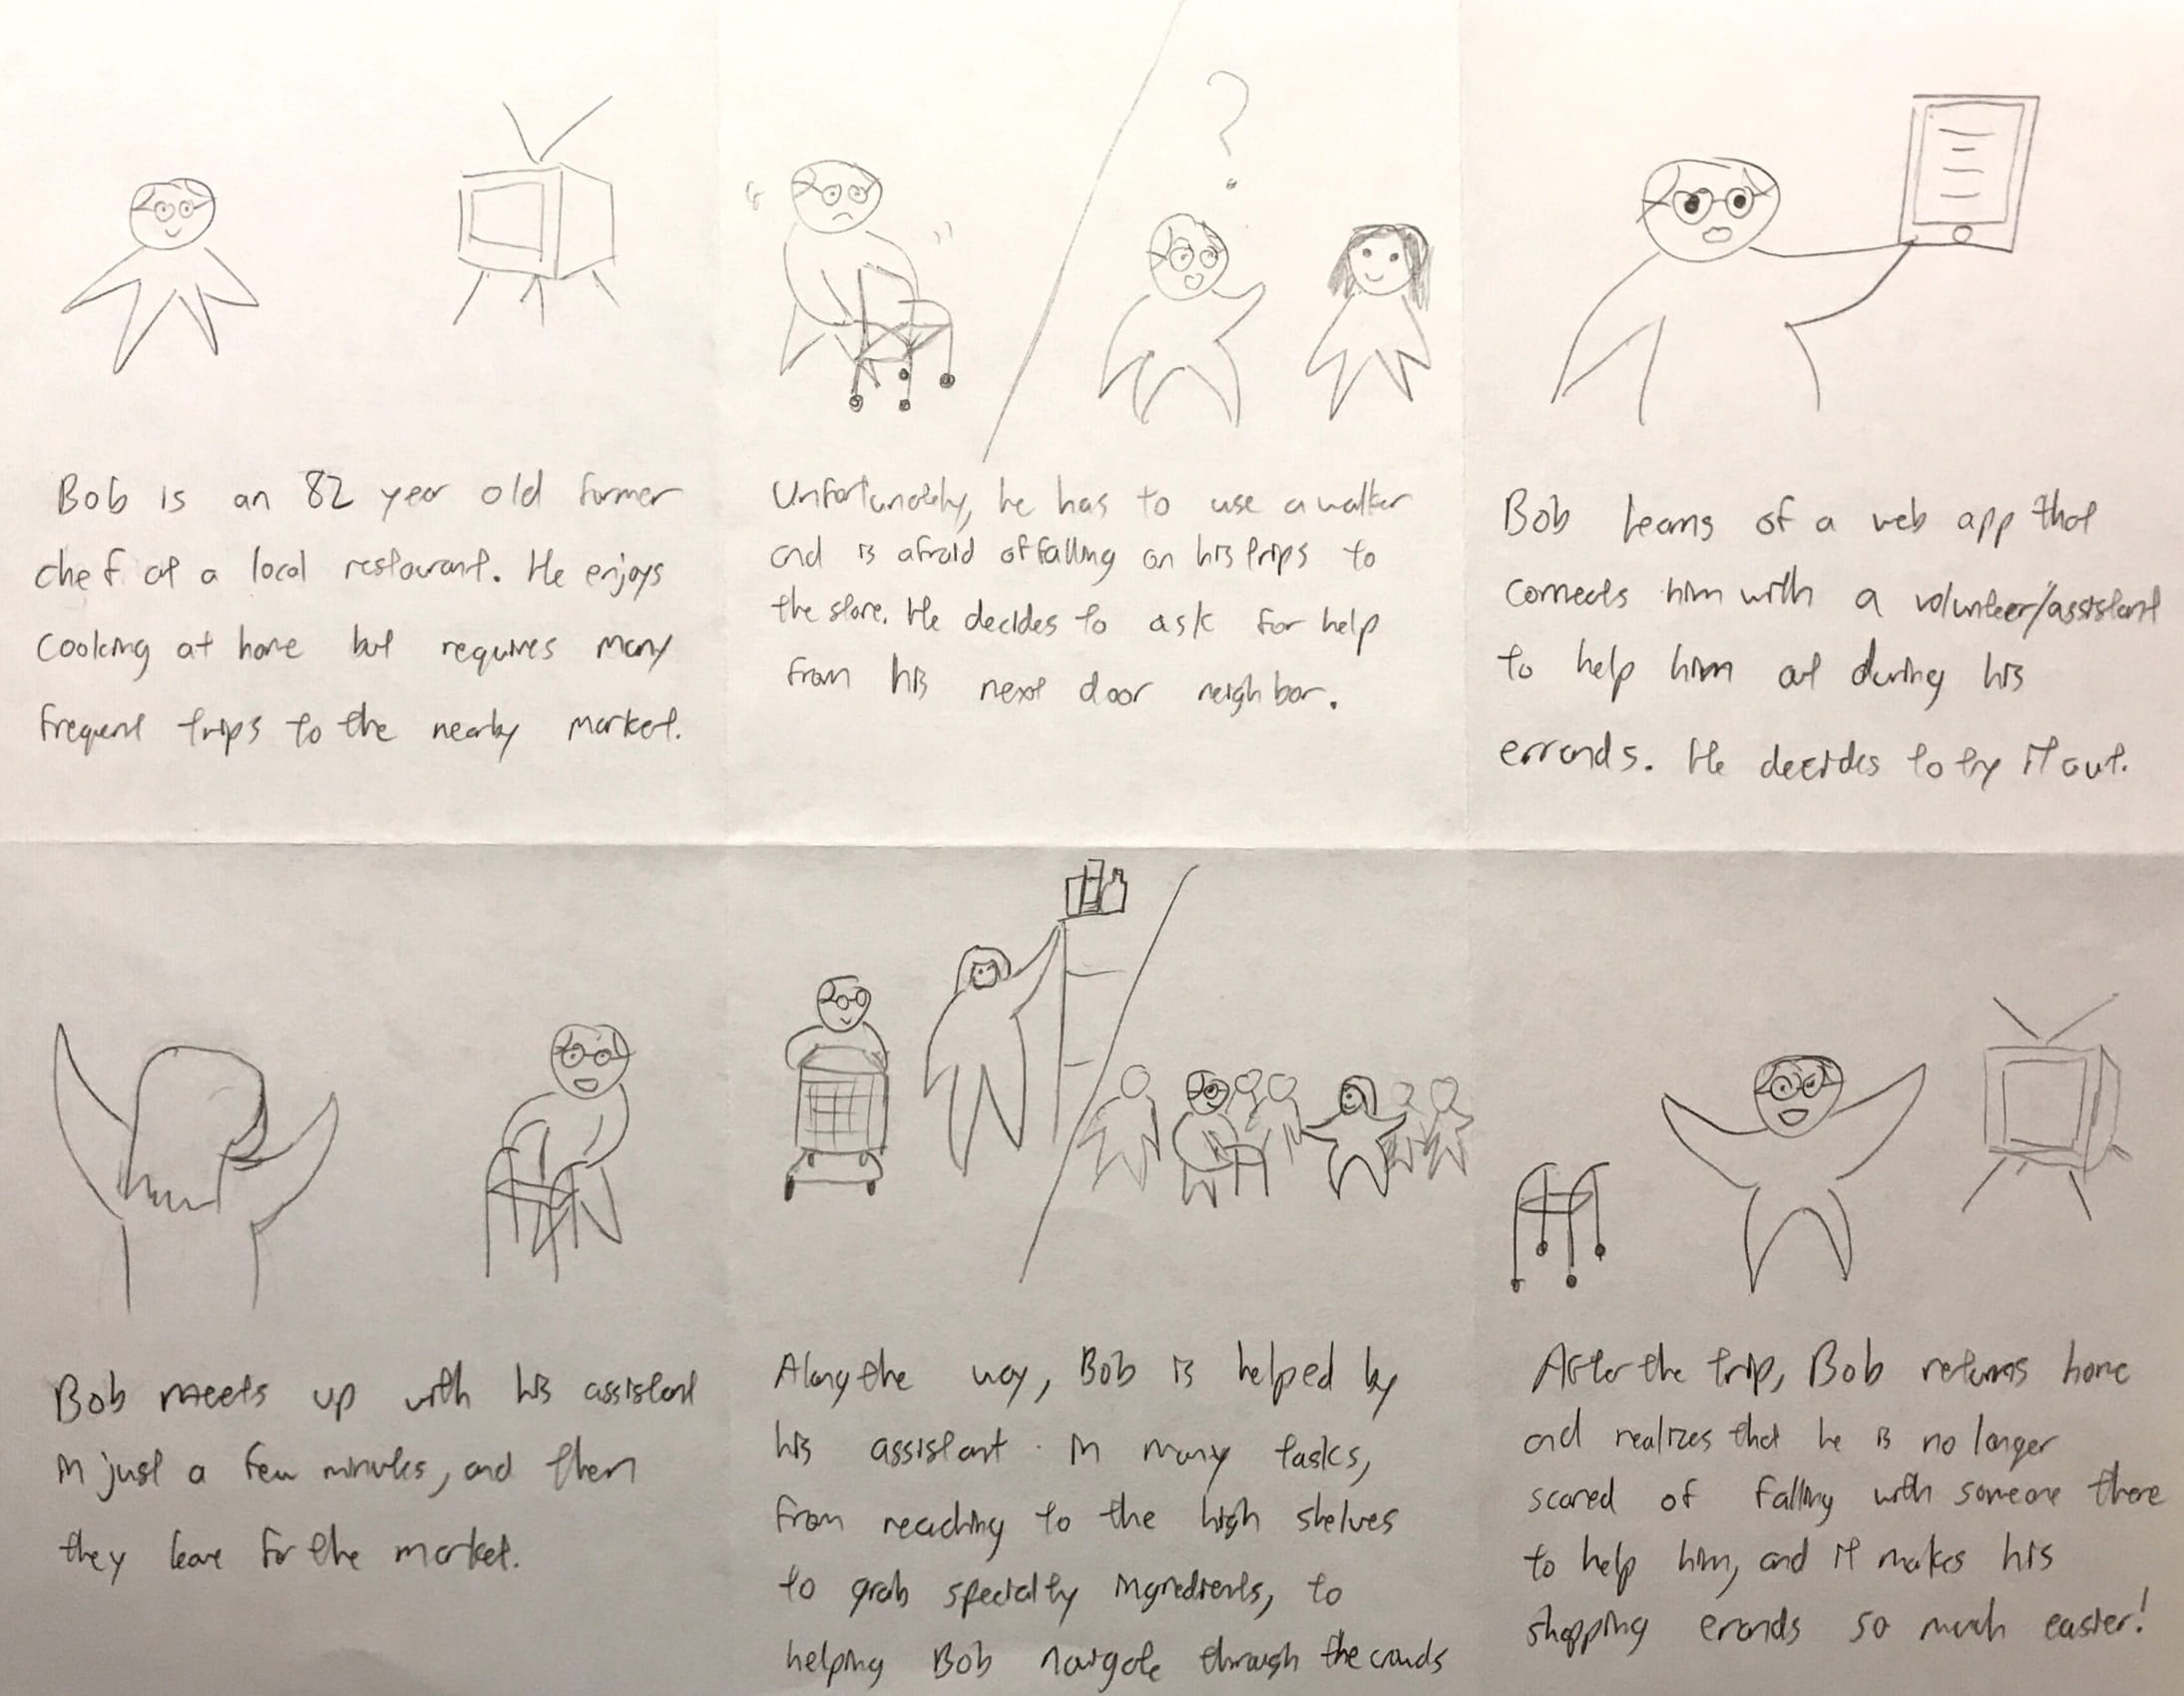 ?
Bob is an 82 year old former
chef at a local restaurant. He enjoys
cooking at home but requires many
frequent trips to the nearby market.
Unfortunately, he has to use a walker
and is afraid of falling on his trips to
the store. He decides to ask for help
from his next door neighbor.
Bob learns of a web app that
connects him with a volunteer/assistant
to help him out during his
errands. He decides to try it out.
Bob meets up with his assistant
in just a few minutes, and then
they leave for the market.
Along the way, Bob is helped by
his assistant in many tasks,
from reaching to the high shelves
to grab specialty ingredients, to
helping Bob navigate through the crowds
After the trip, Bob returns home
and realizes that he is no longer
scared of falling with someone there
to help him, and it makes his
shopping errands so much easier!